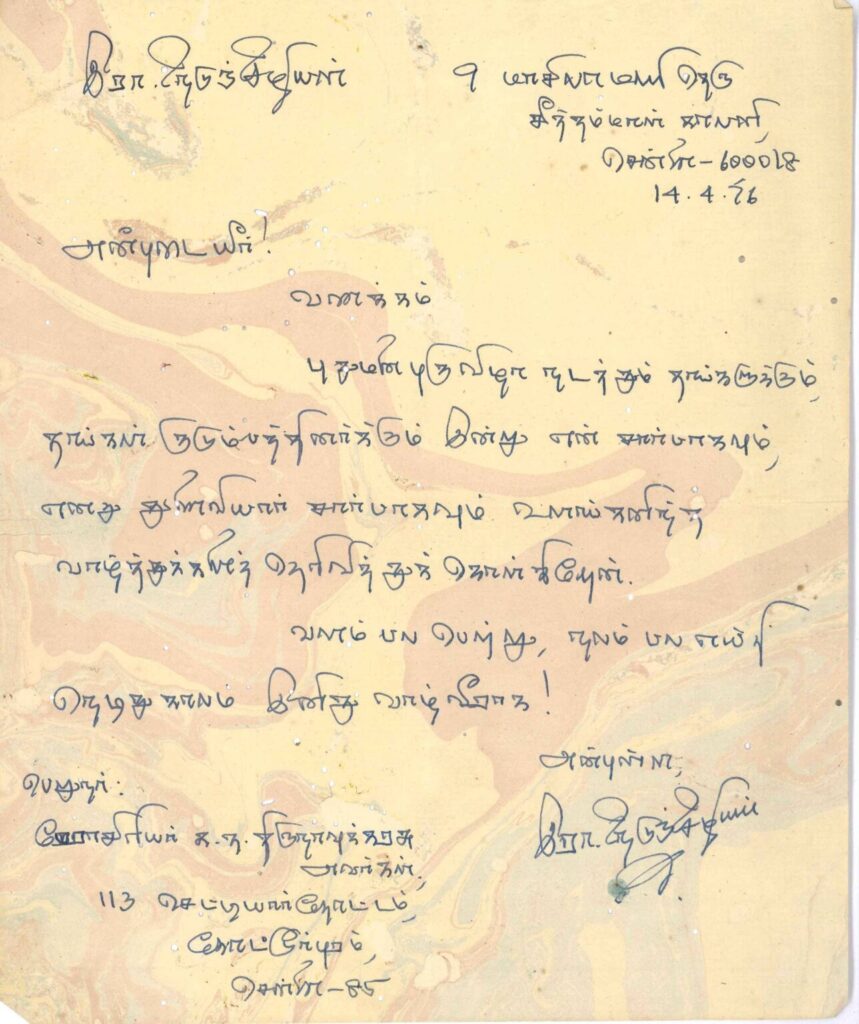 இரா. நெடுஞ்செழியன்
9 மாசிலாமணி தெரு
சீத்தம்மாள் காலனி,
சென்னை - 600018
14.4.76
அன்புடையீர்!
வணக்கம்
புதுமனை புகுவிழா நடத்தும் தாங்களுக்கும்,
தாங்கள் குடும்பத்தினர்க்கும் இன்று என் சார்பாகவும்,
எனது துணைவியார் சார்பாகவும் உளங்கனிந்த
வாழ்த்துக்களைத் தெரிவித்துக் கொள்கிறேன்.
வளம் பல பெற்று, நலம் பல எய்தி
நெடிது காலம் இனிது வாழ்வீராக!
அன்புள்ள,
இரா. நெடுஞ்செழியன்
பெறுநர்:
பேராசிரியர் க. த. திருநாவுக்கரசு
அவர்கள்,
113 செட்டியார்தோட்டம்,
கோட்டூர்புரம்,
சென்னை - 85